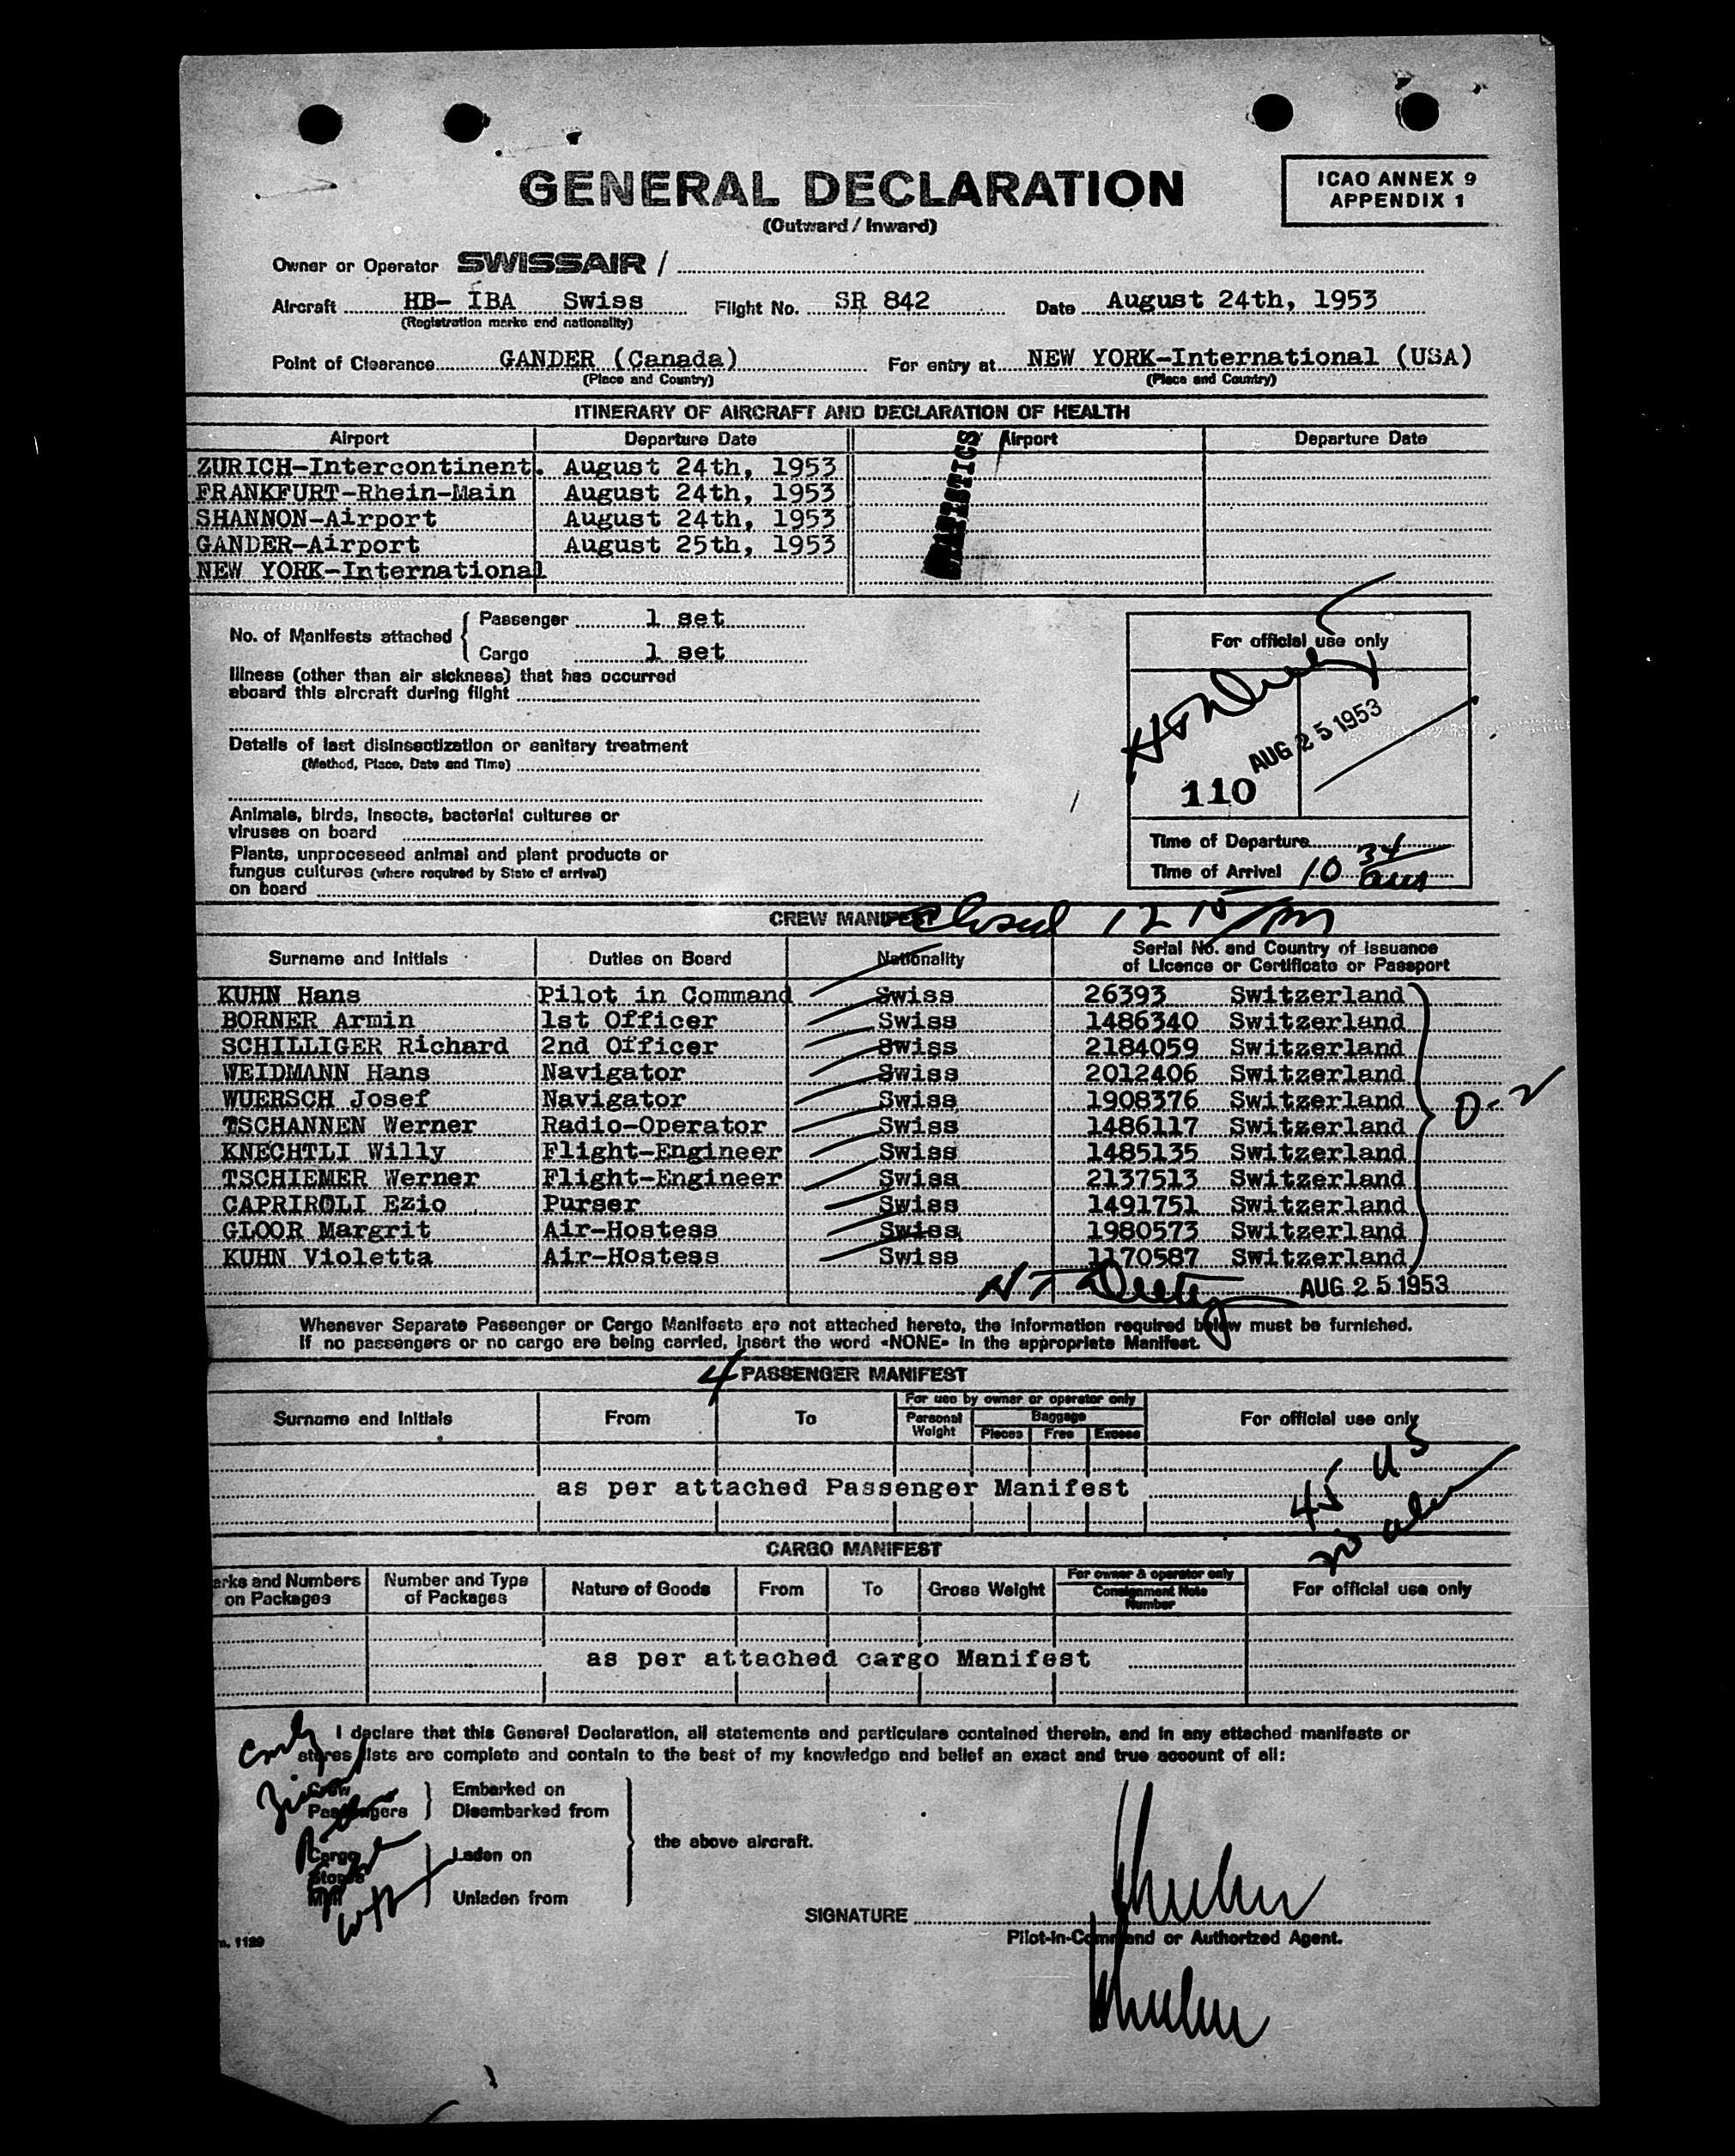 GENERAL DECLARATION
(Outward / Inward)
ICAO ANNEX 9
APPENDIX 1
Owner or Operator SWISSAIR /
Aircraft HB- IBA Swiss Flight No. SR 842 Date August 24th, 1953
(Registration marks and nationality)
Point of Clearance GANDER (Canada) For entry at NEW YORK-International (USA)
(Place and Country) (Place and Country)
ITINERARY OF AIRCRAFT AND DECLARATION OF HEALTH
Airport Departure Date Airport Departure Date
ZURICH-Intercontinent. August 24th, 1953
FRANKFURT-Rhein-Main August 24th, 1953
SHANNON-Airport August 24th, 1953
GANDER-Airport August 25th, 1953
NEW YORK-International
No. of Manifests attached { Passenger 1 set
Cargo 1 set
Illness (other than air sickness) that has occurred
aboard this aircraft during flight
Details of last disinsectization or sanitary treatment
(Method, Place, Date and Time)
Animals, birds, insects, bacterial cultures or
viruses on board
Plants, unprocessed animal and plant products or
fungus cultures (where required by State of arrival)
on board
For official use only
AUG 25 1953
110
Time of Departure
Time of Arrival 10 34 am
CREW MANIFEST Closed 12 15 PM
Surname and Initials Duties on Board Nationality Serial No. and Country of Issuance
of Licence or Certificate or Passport
KUHN Hans Pilot in Command Swiss 26393 Switzerland
BORNER Armin 1st Officer Swiss 1486340 Switzerland
SCHILLIGER Richard 2nd Officer Swiss 2184059 Switzerland
WEIDMANN Hans Navigator Swiss 2012406 Switzerland
WUERSCH Josef Navigator Swiss 1908376 Switzerland
TSCHANNEN Werner Radio-Operator Swiss 1486117 Switzerland
KNECHTLI Willy Flight-Engineer Swiss 1485135 Switzerland
TSCHIEMER Werner Flight-Engineer Swiss 2137513 Switzerland
CAPRIROLI Ezio Purser Swiss 1491751 Switzerland
GLOOR Margrit Air-Hostess Swiss 1980573 Switzerland
KUHN Violetta Air-Hostess Swiss 1170587 Switzerland
D-2
AUG 25 1953
Whenever Separate Passenger or Cargo Manifests are not attached hereto, the information required below must be furnished.
If no passengers or no cargo are being carried, insert the word «NONE» in the appropriate Manifest.
4 PASSENGER MANIFEST
Surname and Initials From To For use by owner or operator only For official use only
Personal Weight Baggage
Pieces Free Excess
45 US
as per attached Passenger Manifest
CARGO MANIFEST
arks and Numbers on Packages Number and Type of Packages Nature of Goods From To Gross Weight For owner & operator only Consignment Note Number For official use only
as per attached cargo Manifest
I declare that this General Declaration, all statements and particulars contained therein, and in any attached manifests or
stores lists are complete and contain to the best of my knowledge and belief an exact and true account of all:
Crew
Passengers } Embarked on
Disembarked from
the above aircraft.
Cargo
Stores
Laden on
Unladen from
SIGNATURE
Pilot-in-Command or Authorized Agent.
m. 1129